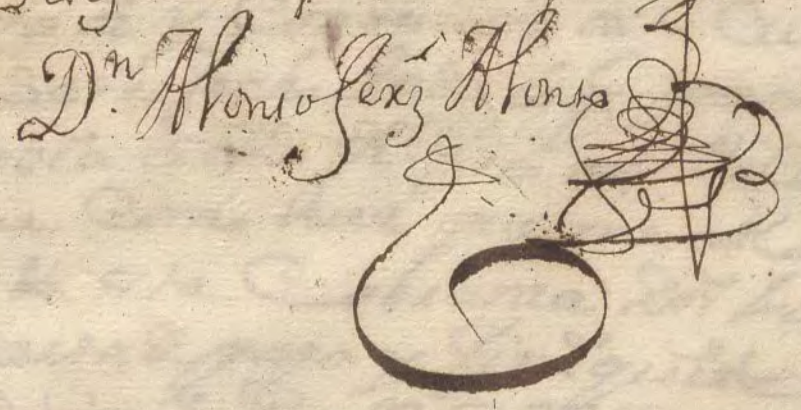 Dn. Alonso Ferz Alonso